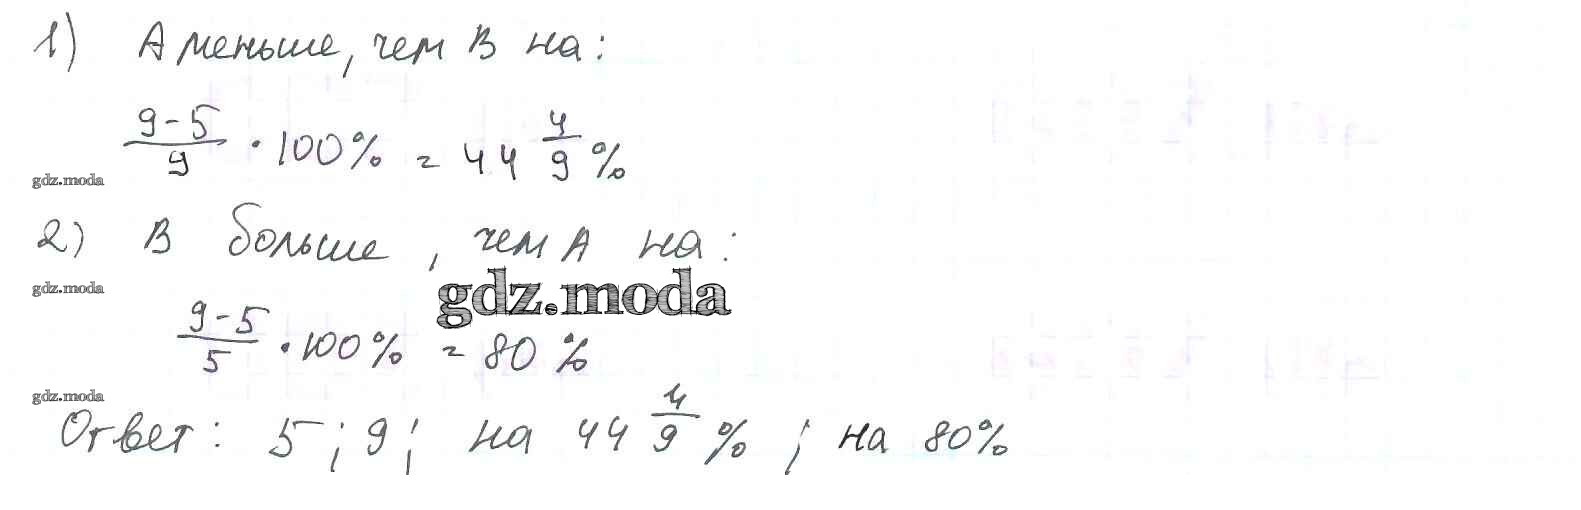 1) А меньше, чем В на:
9-5/9 · 100% = 44 4/9 %
gdz.moda
2) В больше, чем А на:
gdz.moda
gdz.moda
9-5/5 · 100% = 80 %
gdz.moda
Ответ: 5; 9; на 44 4/9 %; на 80%